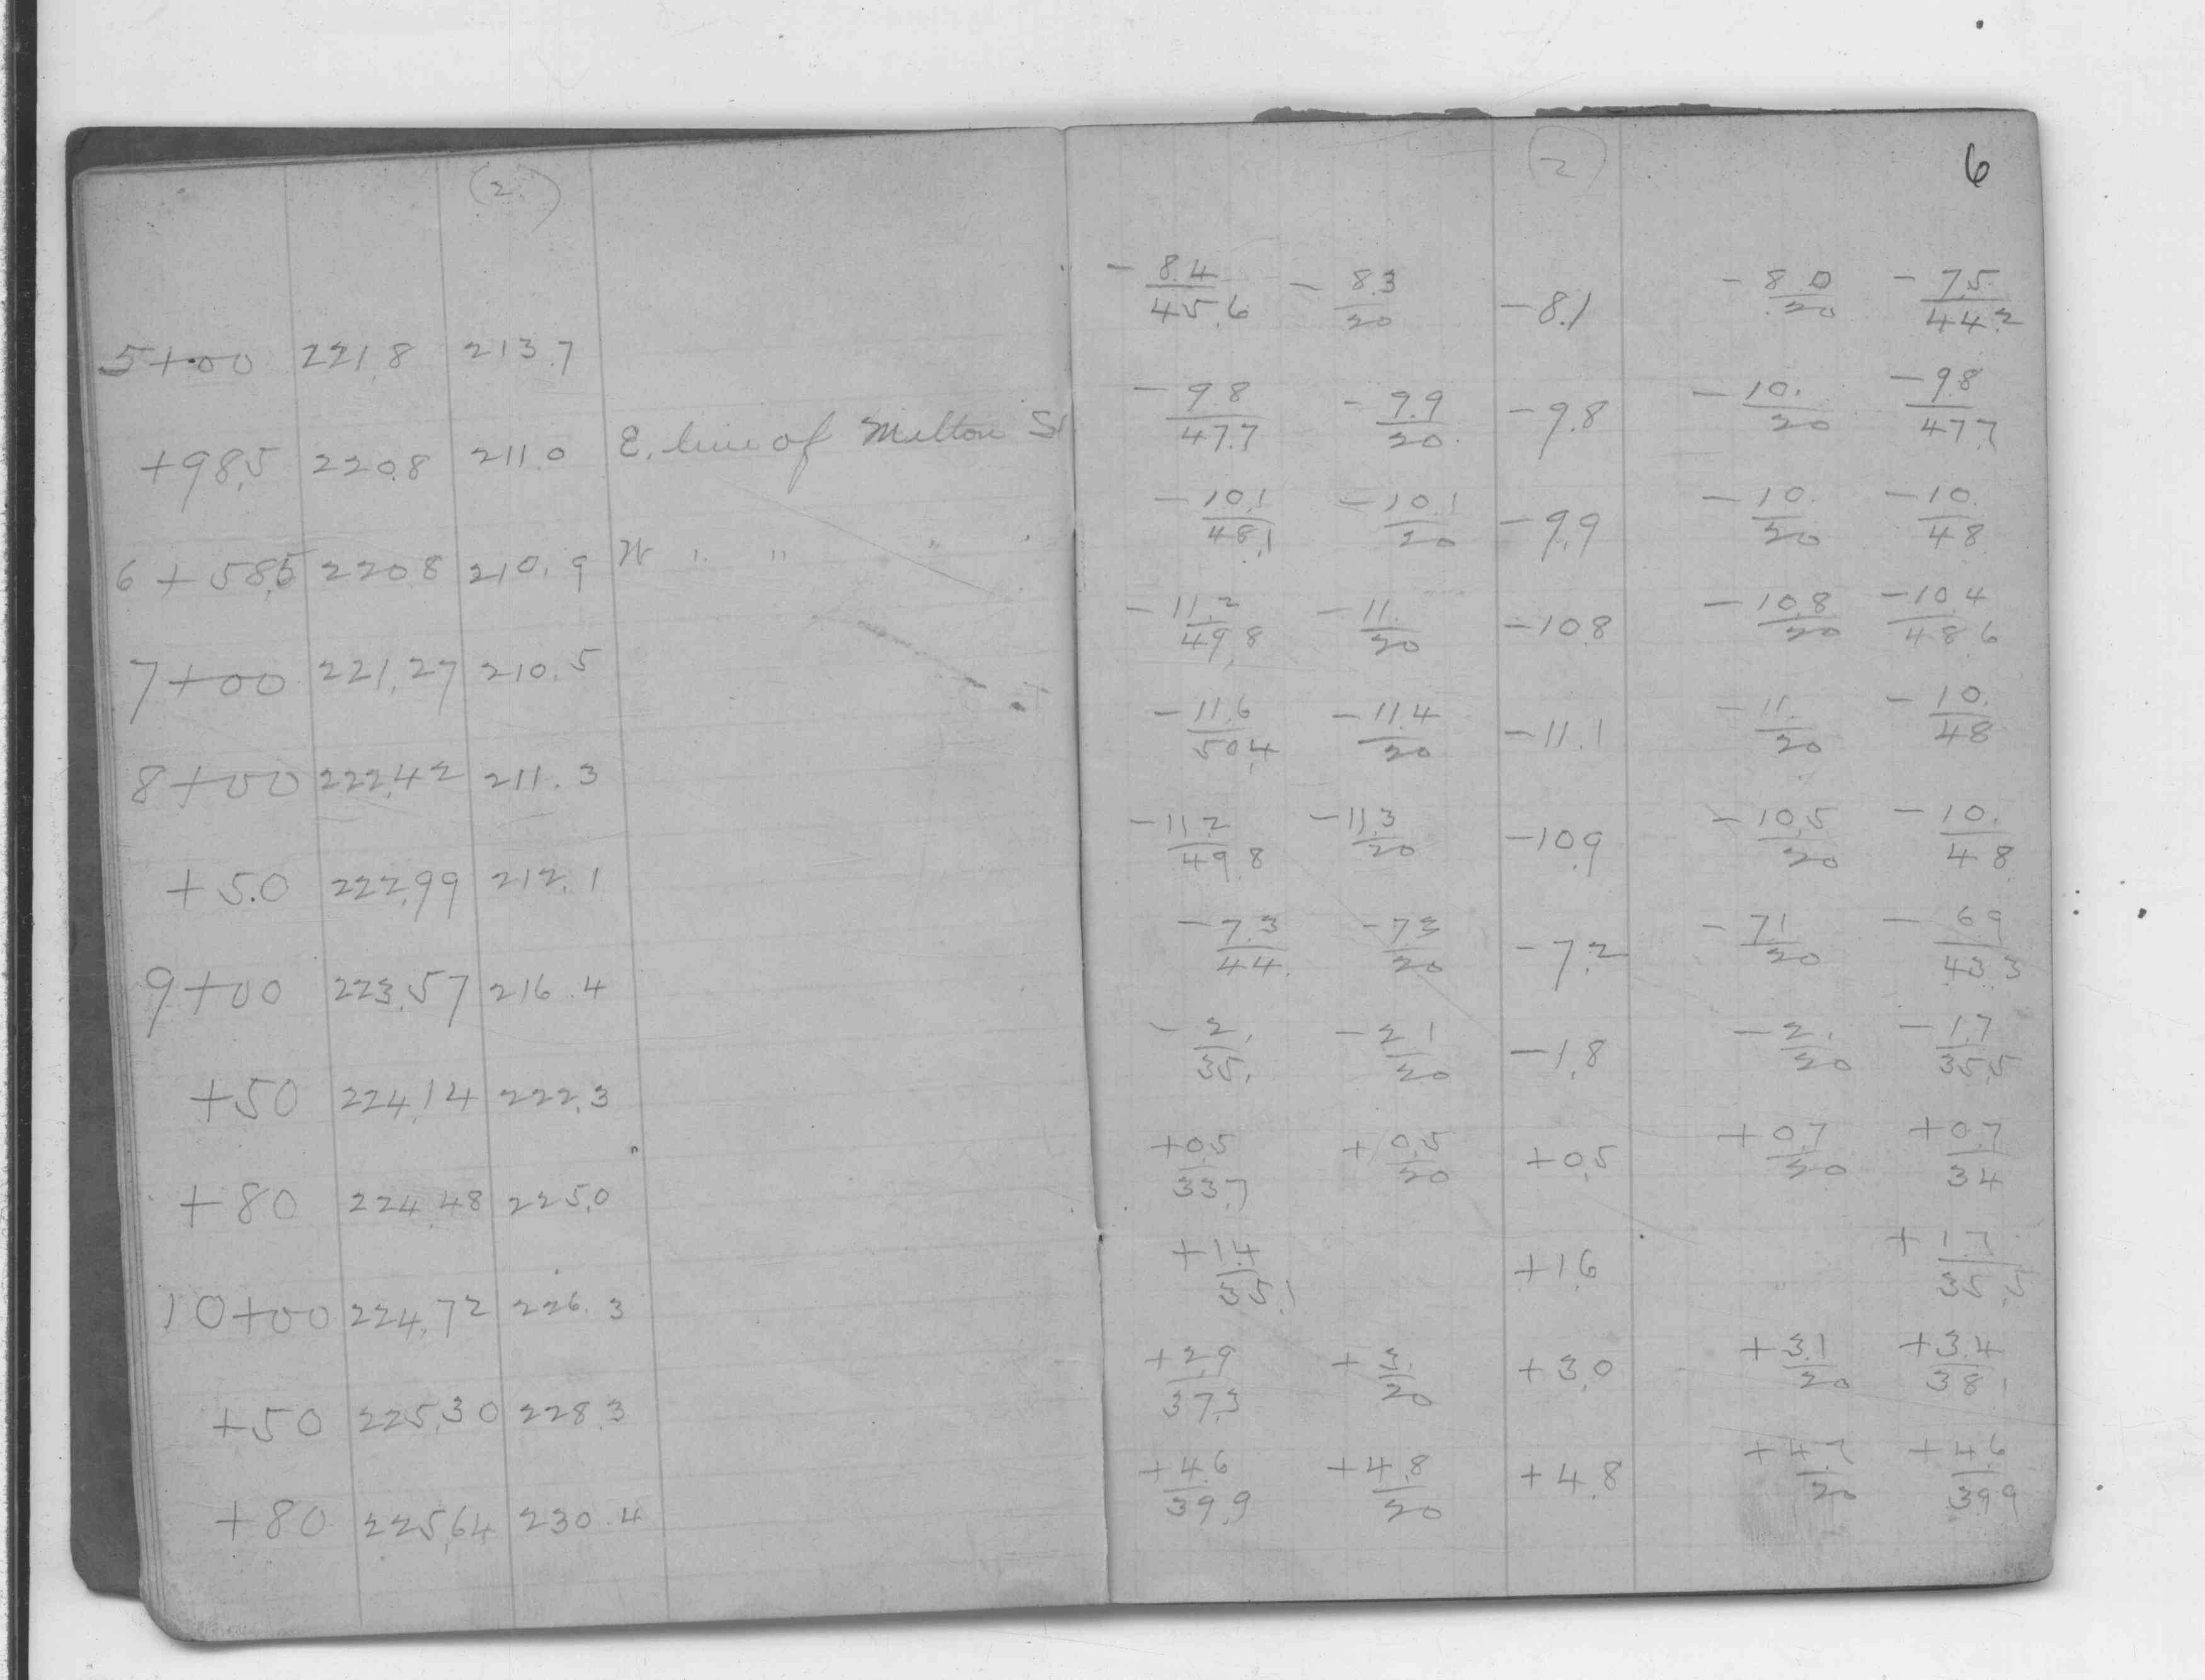 (2.)
5+00 221.8 213.7
+98.5 220.8 211.0 E. line of Milton St
6+58.5 220.8 210.9 W " " " "
7+00 221.27 210.5
8+00 222.42 211.3
+5.0 222.99 212.1
9+00 223.57 216.4
+50 224.14 222.3
+80 224.48 225.0
10+00 224.72 226.3
+50 225.30 228.3
+80 225.64 230.4
(2) 6
-8.4/45.6 -8.3/20 -8.1 -8.0/20 -7.5/44.2
-9.8/47.7 -9.9/20 -9.8 -10./20 -9.8/47.7
-10.1/48.1 -10.1/20 -9.9 -10./20 -10./48
-11.2/49.8 -11./20 -10.8 -10.8/20 -10.4/48.6
-11.6/50.4 -11.4/20 -11.1 -11./20 -10./48
-11.2/49.8 -11.3/20 -10.9 -10.5/20 -10./48
-7.3/44. -7.3/20 -7.2 -7.1/20 -6.9/43.3
-2./35. -2.1/20 -1.8 -2./20 -1.7/35.5
+0.5/33.7 +0.5/20 +0.5 +0.7/20 +0.7/34
+1.4/35.1 +1.6 +1.7/35.5
+2.9/37.3 +3./20 +3.0 +3.1/20 +3.4/38.1
+4.6/39.9 +4.8/20 +4.8 +4.7/20 +4.6/39.9